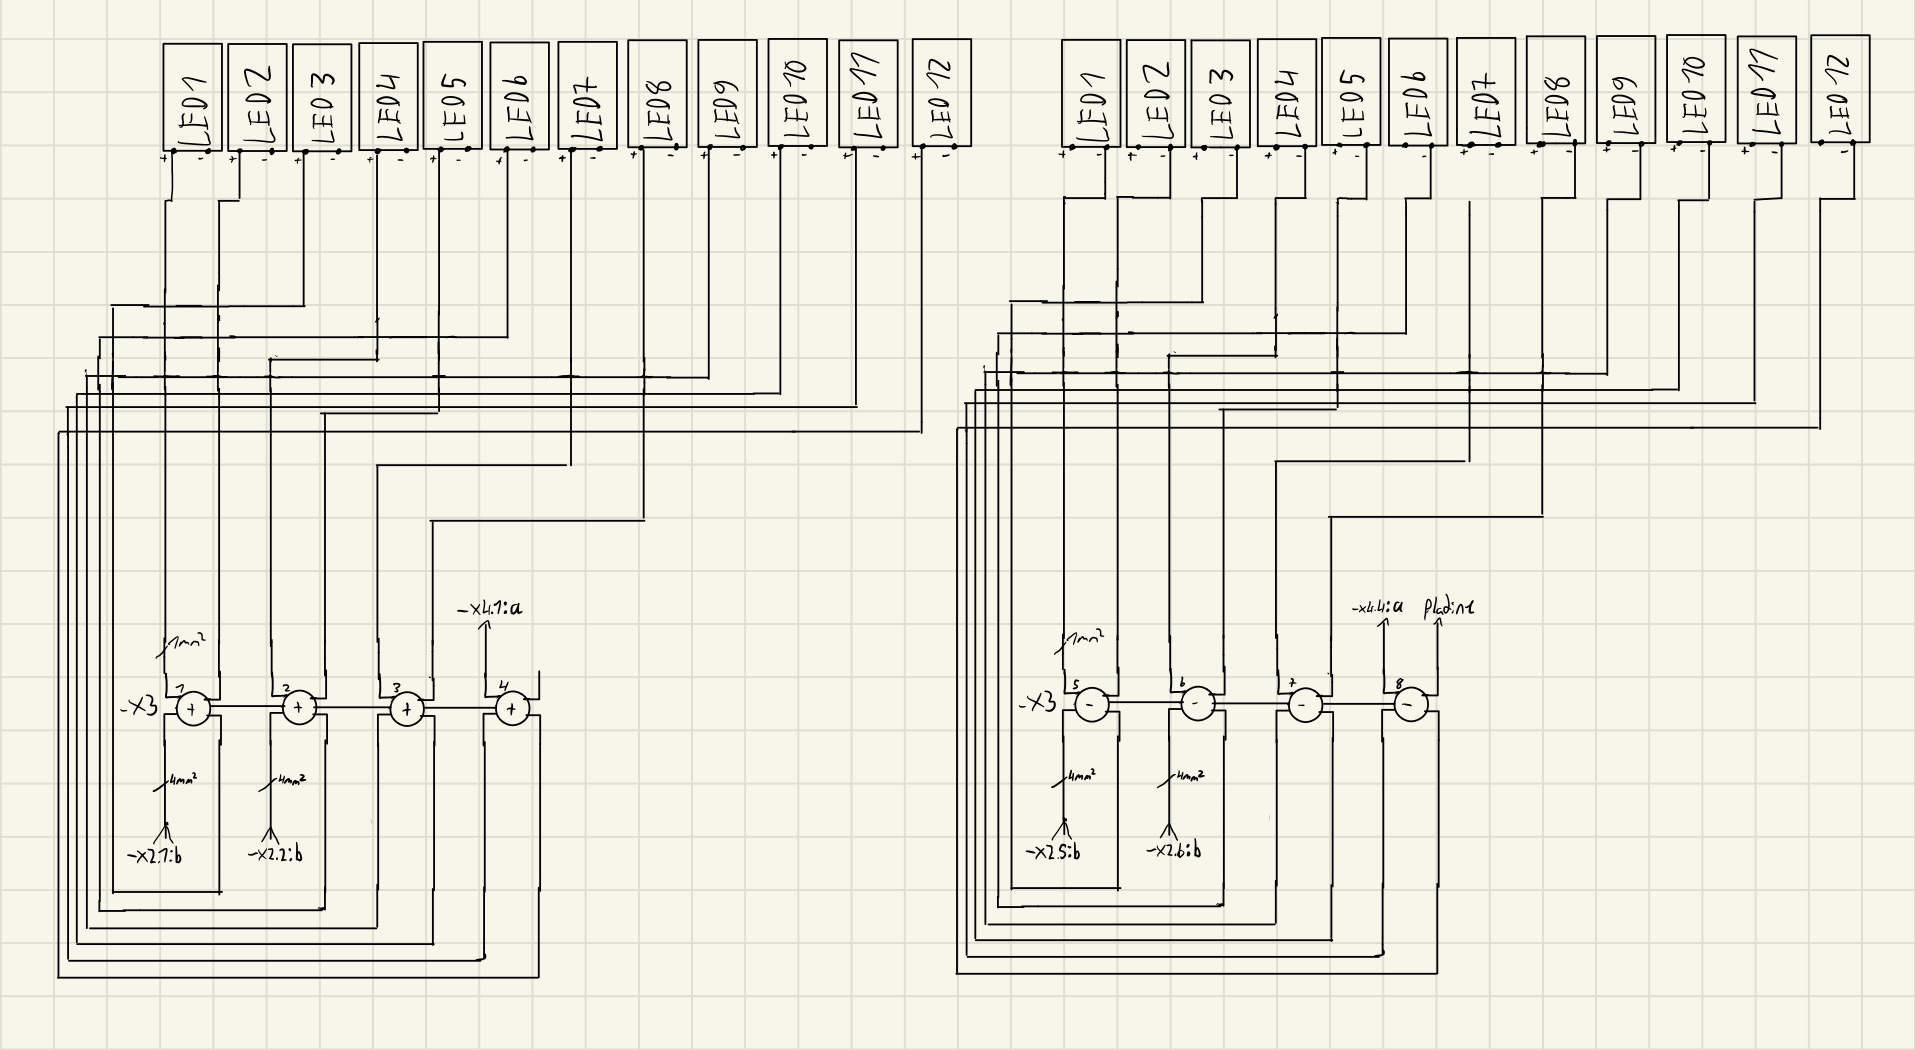 LED1 LED2 LED3 LED4 LED5 LED6 LED7 LED8 LED9 LED10 LED11 LED12
+ - + - + - + - + - + - + - + - + - + - + - + -
-X4.1:a
1mm²
-X3 1 + 2 + 3 + 4 +
4mm² 4mm²
-X2.1:b -X2.2:b
LED1 LED2 LED3 LED4 LED5 LED6 LED7 LED8 LED9 LED10 LED11 LED12
+ - + - + - + - + - + - + - + - + - + - + - + -
-X4.4:a Pladine
1mm²
-X3 5 - 6 - 7 - 8 -
4mm² 4mm²
-X2.5:b -X2.6:b